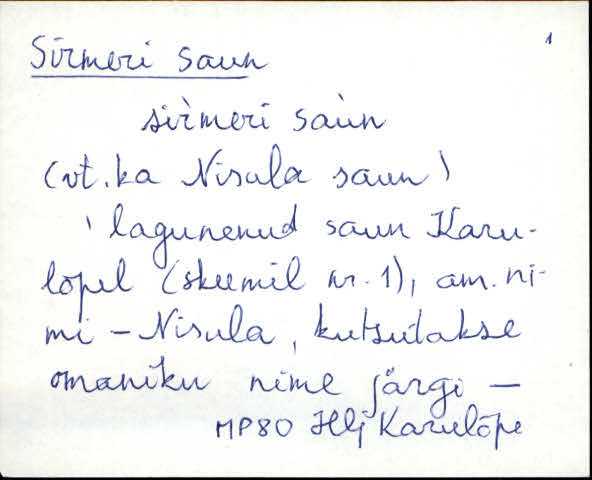 1
Sirmeri saun
sir̀meri saùn
(vt. ka Nisula saun)
' lagunenud saun Karu-
lõpel (skeemil nr. 1), am. ni-
mi – Nisula, kutsutakse
omaniku nime järgi –
MP80 Hlj Karulõpe